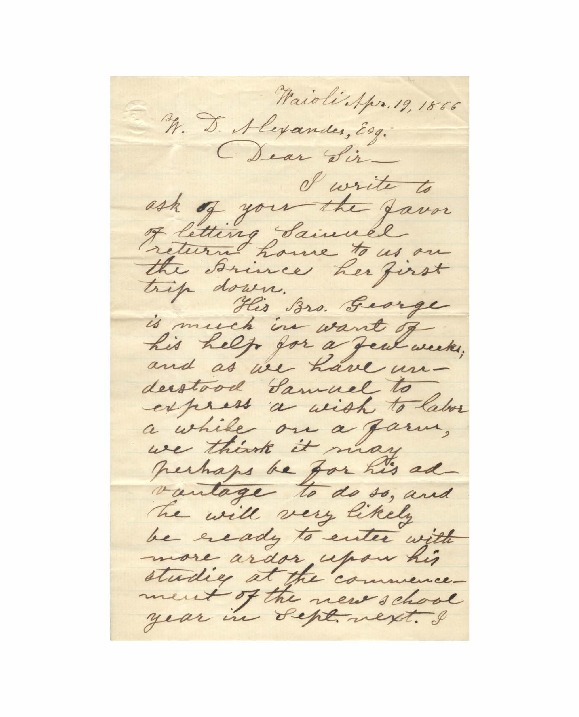 Waioli Apr. 19, 1866
W. D. Alexander, Esq.
Dear Sir—
I write to
ask of your the favor
of letting Samuel
return home to us on
the Prince her first
trip down.
His Bro. George
is much in want of
his help for a few weeks;
and as we have un-
derstood Samuel to
express a wish to labor
a while on a farm,
we think it may
perhaps be for his ad-
vantage to do so, and
he will very likely
be ready to enter with
more ardor upon his
studies at the commence-
ment of the new school
year in Sept. next. I